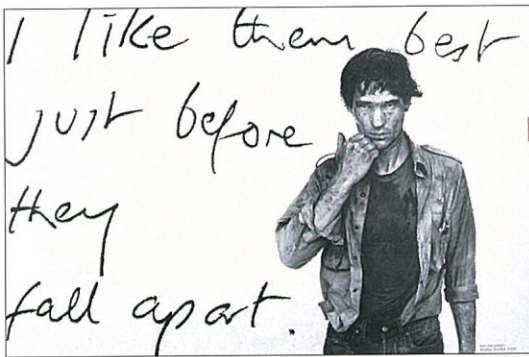 I like them best
just before
they
fall apart.